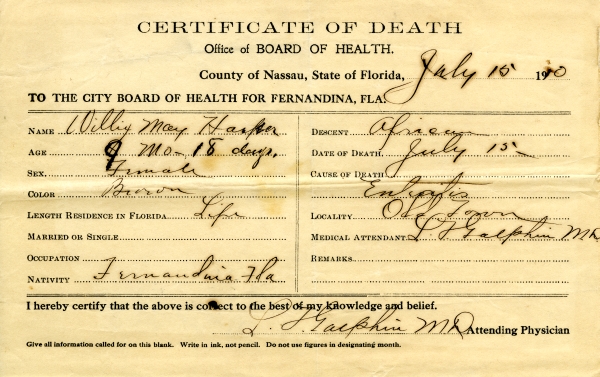 CERTIFICATE OF DEATH
Office of BOARD OF HEALTH.
County of Nassau, State of Florida, July 15 1910
TO THE CITY BOARD OF HEALTH FOR FERNANDINA, FLA.
NAME Willie May Harper
AGE 9 Mo- 18 days.
SEX Female
COLOR Brown
LENGTH RESIDENCE IN FLORIDA Life
MARRIED OR SINGLE
OCCUPATION
NATIVITY Fernandina Fla
DESCENT African
DATE OF DEATH July 15
CAUSE OF DEATH
Enteritis
LOCALITY Old Town
MEDICAL ATTENDANT Galphin MD
REMARKS
I hereby certify that the above is correct to the best of my knowledge and belief.
Galphin MD Attending Physician
Give all information called for on this blank. Write in ink, not pencil. Do not use figures in designating month.